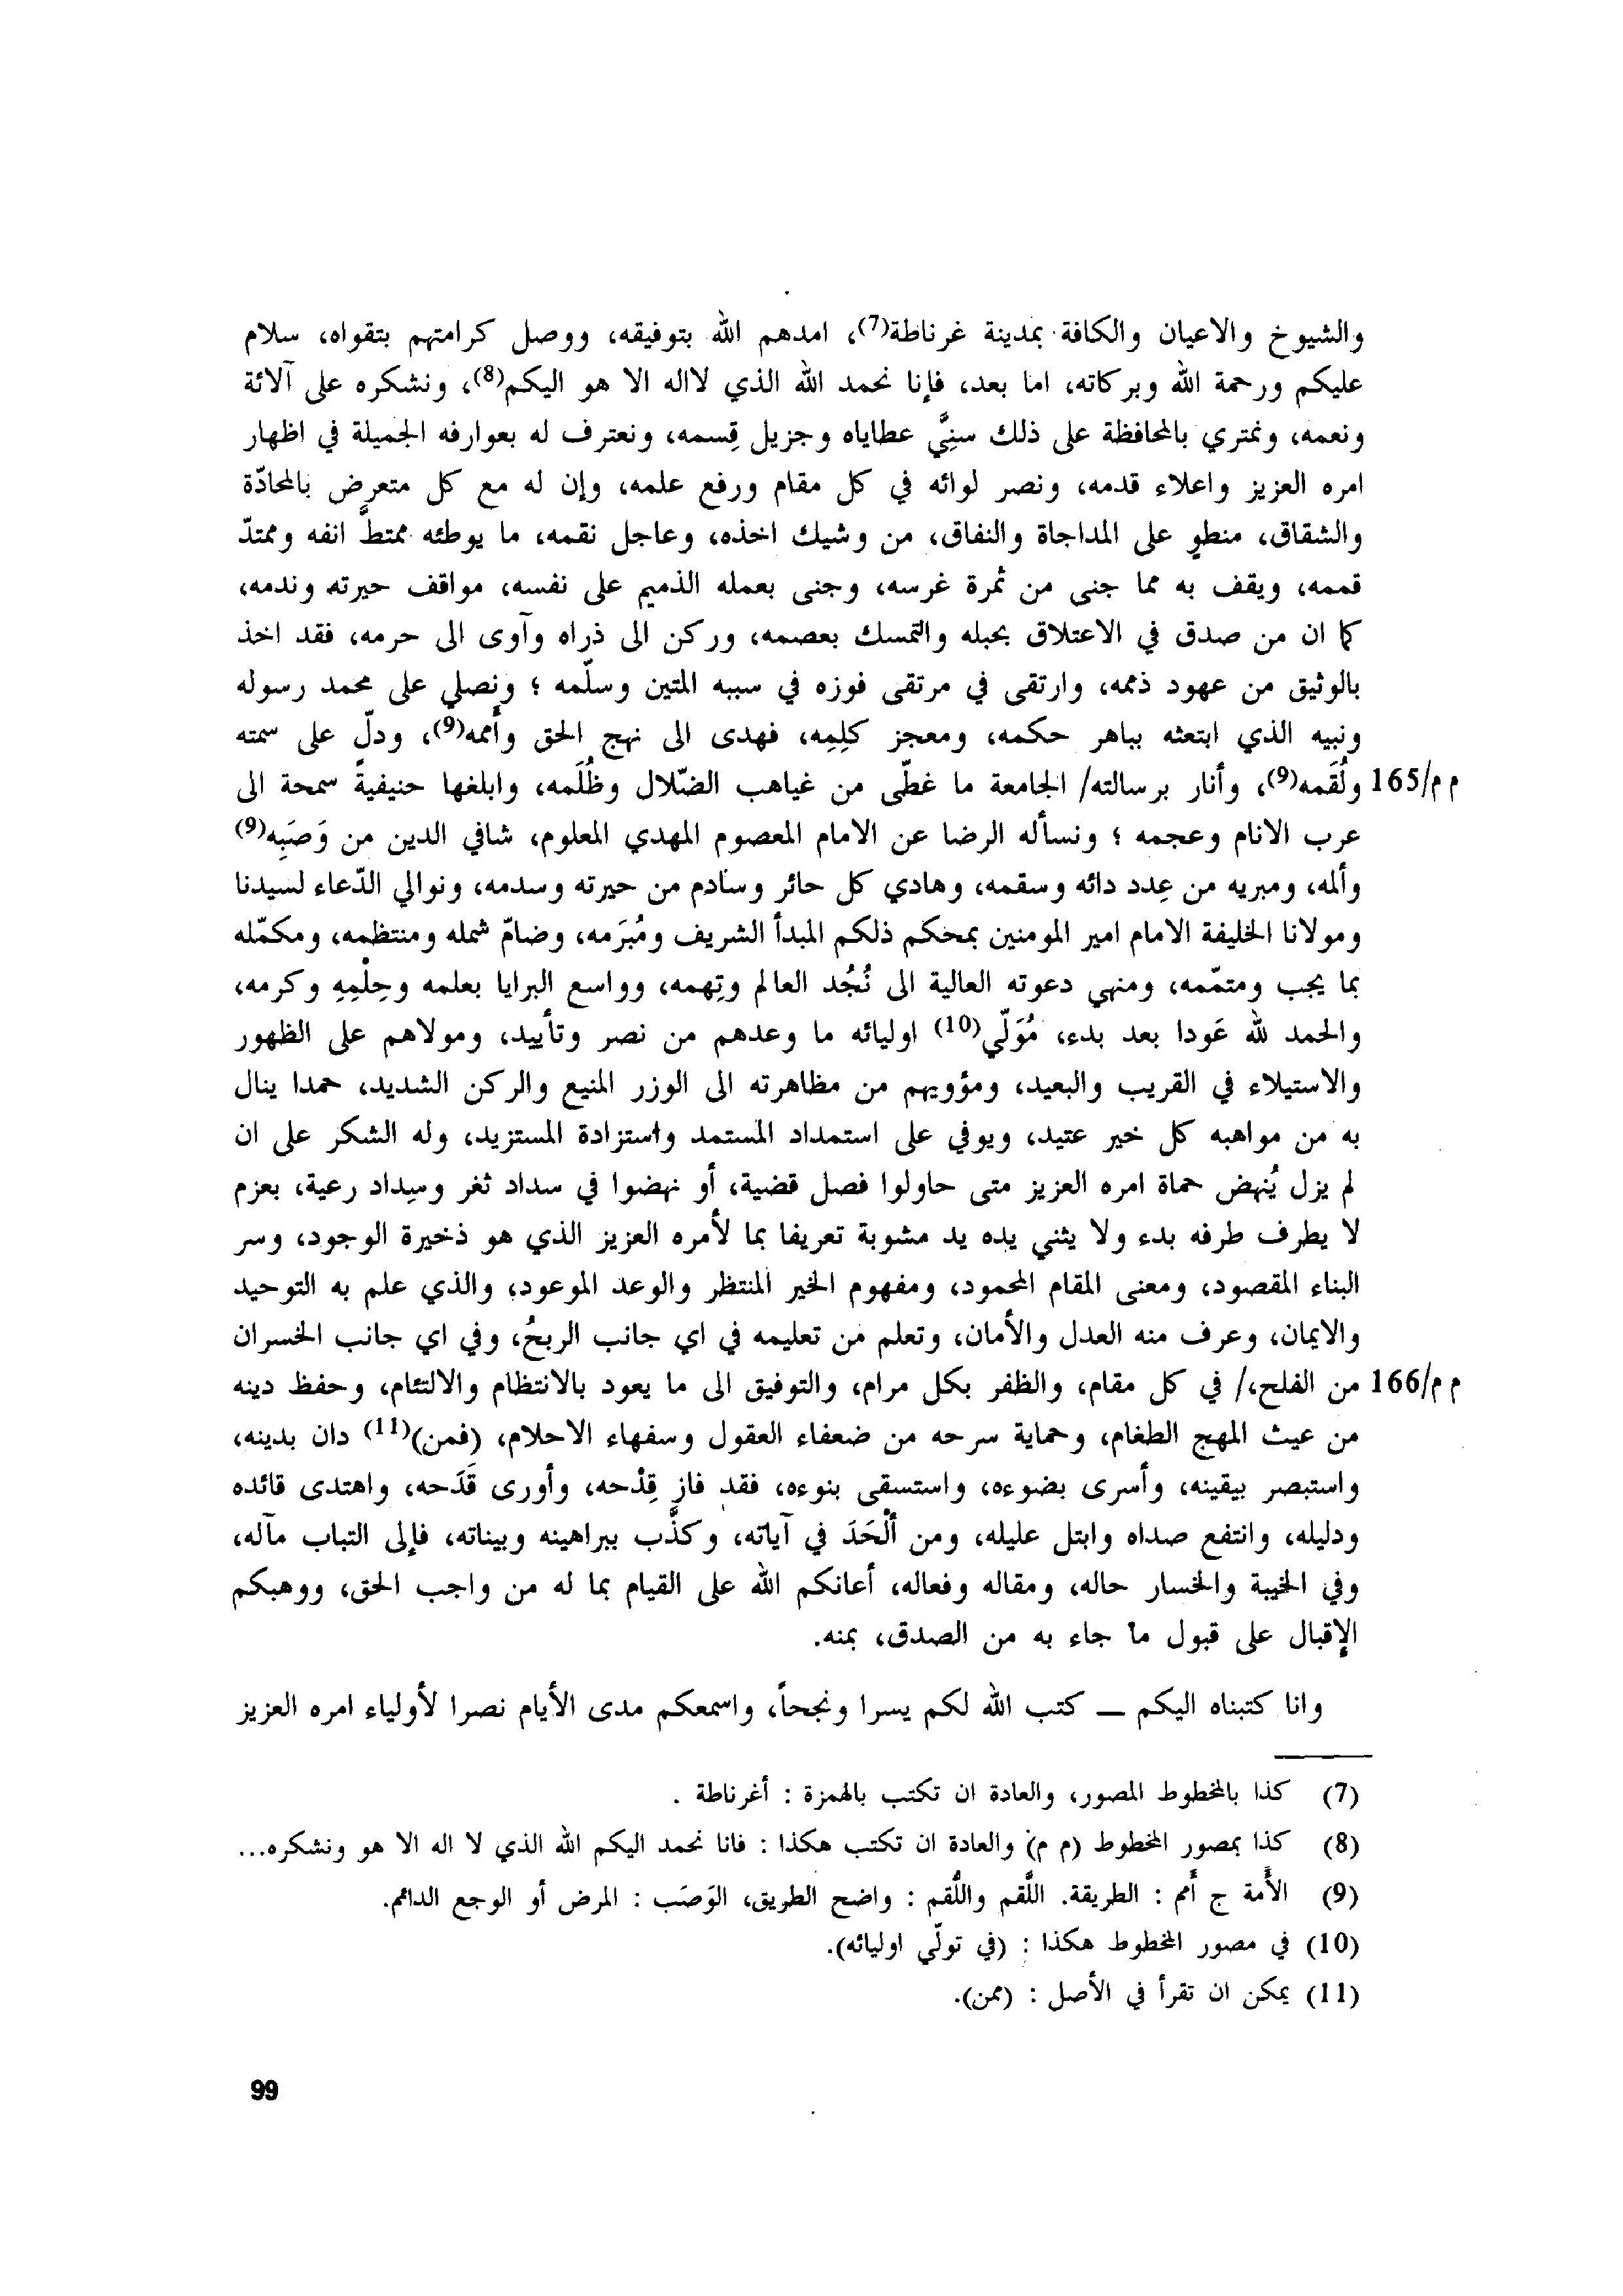 والشيوخ والاعيان والكافة بمدينة غرناطة(7)، امدهم الله بتوفيقه، ووصل كرامتهم بتقواه، سلام
عليكم ورحمة الله وبركاته، اما بعد، فإنا نحمد الله الذي لااله الا هو اليكم(8)، ونشكره على آلائة
ونعمه، ونمتري بالمحافظة على ذلك سنِيَّ عطاياه وجزيل قِسمه، ونعترف له بعوارفه الجميلة في اظهار
امره العزيز واعلاء قدمه، ونصر لوائه في كل مقام ورفع علمه، وإن له مع كل متعرض بالمحادّة
والشقاق، منطوٍ على المداجاة والنفاق، من وشيك اخذه، وعاجل نقمه، ما يوطئه ممتطَّ انفه وممتدّ
قممه، ويقف به مما جنى من ثمرة غرسه، وجنى بعمله الذميم على نفسه، مواقف حيرته وندمه،
كما ان من صدق في الاعتلاق بحبله والتمسك بعصمه، وركن الى ذراه وآوى الى حرمه، فقد اخذ
بالوثيق من عهود ذممه، وارتقى في مرتقى فوزه في سببه المتين وسلّمه ؛ ونصلي على محمد رسوله
ونبيه الذي ابتعثه بباهر حكمه، ومعجز كلِمِه، فهدى الى نهج الحق وأممه(9)، ودلّ على سمته
م م/165 ولُقَمه(9)، وأنار برسالته/ الجامعة ما غطّى من غياهب الضّلال وظُلَمه، وابلغها حنيفيةً سمحة الى
عرب الانام وعجمه ؛ ونسأله الرضا عن الامام المعصوم المهدي المعلوم، شافي الدين من وَصَبِه(9)
وألمه، ومبريه من عِدد دائه وسقمه، وهادي كل حائر وسادم من حيرته وسدمه، ونوالي الدّعاء لسيدنا
ومولانا الخليفة الامام امير المومنين بمحكم ذلكم المبدأ الشريف ومُبرَمه، وضامّ شمله ومنتظمه، ومكمّله
بما يجب ومتمّمه، ومنهي دعوته العالية الى نُجُد العالم وتِهمه، وواسع البرايا بعلمه وحِلْمِهِ وكرمه،
والحمد لله عَودا بعد بدء، مُوَلّي(10) اوليائه ما وعدهم من نصر وتأييد، ومولاهم على الظهور
والاستيلاء في القريب والبعيد، ومؤويهم من مظاهرته الى الوزر المنيع والركن الشديد، حمدا ينال
به من مواهبه كل خير عتيد، ويوفي على استمداد المستمد واستزادة المستزيد، وله الشكر على ان
لم يزل يُنهض حماة امره العزيز متى حاولوا فصل قضية، أو نهضوا في سداد ثغر وسِداد رعية، بعزم
لا يطرف طرفه بدء ولا يثني يده يد مشوبة تعريفا بما لأمره العزيز الذي هو ذخيرة الوجود، وسر
البناء المقصود، ومعنى المقام المحمود، ومفهوم الخير المنتظر والوعد الموعود، والذي علم به التوحيد
والايمان، وعرف منه العدل والأمان، وتعلم من تعليمه في اي جانب الربحُ، وفي اي جانب الخسران
م م/166 من الفلح،/ في كل مقام، والظفر بكل مرام، والتوفيق الى ما يعود بالانتظام والالتئام، وحفظ دينه
من عيث المهج الطغام، وحماية سرحه من ضعفاء العقول وسفهاء الاحلام، (فمن)(11) دان بدينه،
واستبصر بيقينه، وأسرى بضوءه، واستسقى بنوءه، فقد فاز قِدْحه، وأورى قَدَحه، واهتدى قائده
ودليله، وانتفع صداه وابتل عليله، ومن أَلْحَدَ في آياته، وكذَّب ببراهينه وبيناته، فإلى التباب مآله،
وفي الخيبة والخسار حاله، ومقاله وفعاله، أعانكم الله على القيام بما له من واجب الحق، ووهبكم
الإقبال على قبول ما جاء به من الصدق، بمنه.
وانا كتبناه اليكم — كتب الله لكم يسرا ونجحاً، واسمعكم مدى الأيام نصرا لأولياء امره العزيز
(7) كذا بالمخطوط المصور، والعادة ان تكتب بالهمزة : أغرناطة .
(8) كذا بمصور المخطوط (م م) والعادة ان تكتب هكذا : فانا نحمد اليكم الله الذي لا اله الا هو ونشكره...
(9) الأُمة ج أُمم : الطريقة. اللَّقم واللُّقم : واضح الطريق، الوَصَب : المرض أو الوجع الدائم.
(10) في مصور المخطوط هكذا : (في تولّي اوليائه).
(11) يمكن ان تقرأ في الأصل : (ممن).
99